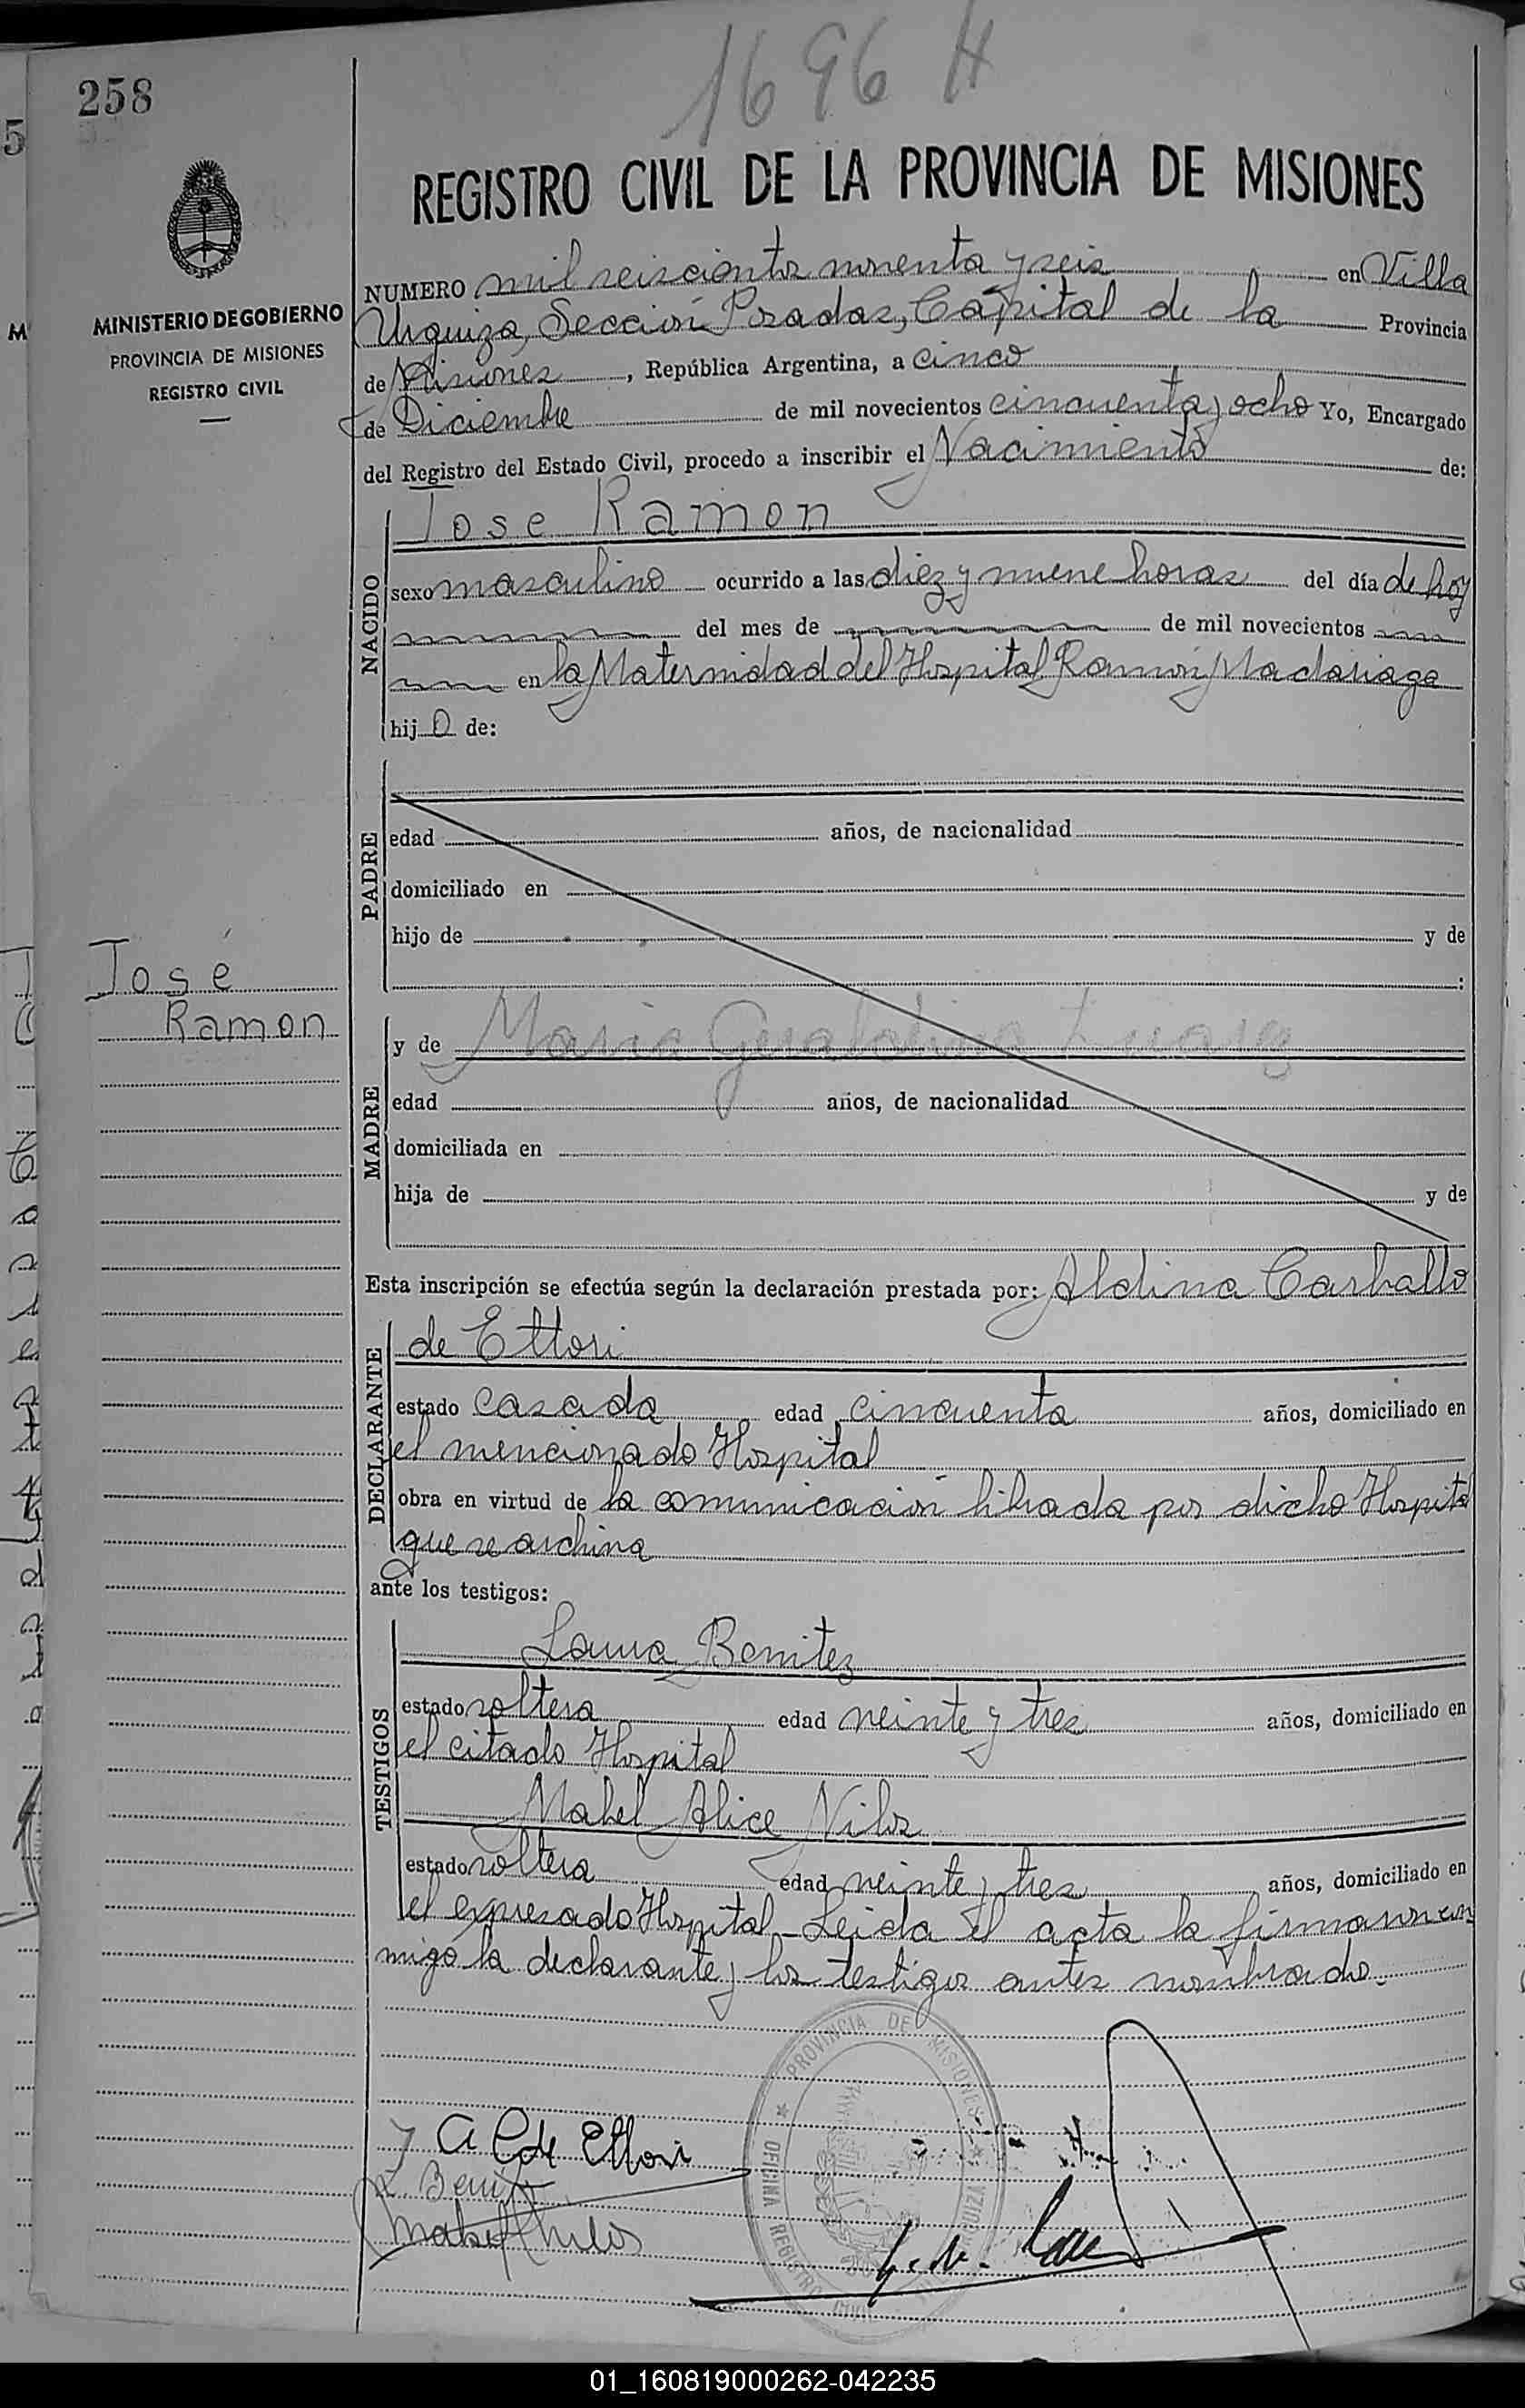 1696 H
258
REGISTRO CIVIL DE LA PROVINCIA DE MISIONES
MINISTERIO DE GOBIERNO
PROVINCIA DE MISIONES
REGISTRO CIVIL
NUMERO mil seiscientos noventa y seis en Villa
Urquiza, Sección Posadas, Capital de la Provincia
de Misiones, República Argentina, a cinco
de Diciembre de mil novecientos cincuenta y ocho Yo, Encargado
del Registro del Estado Civil, procedo a inscribir el Nacimiento de:
Jose Ramon
NACIDO
sexo masculino ocurrido a las diez y nueve horas del día de hoy
del mes de de mil novecientos
en la Maternidad del Hospital Ramón Madariaga
hij o de:
PADRE
edad años, de nacionalidad
domiciliado en
hijo de y de
:
José
Ramon
MADRE
y de Maria Geraldina
edad años, de nacionalidad
domiciliada en
hija de y de
Esta inscripción se efectúa según la declaración prestada por: Aldina Carballo
DECLARANTE
de Ettori
estado casada edad cincuenta años, domiciliado en
el mencionado Hospital
obra en virtud de la comunicación librada por dicho Hospital
que se archiva
ante los testigos:
TESTIGOS
Laura Benitez
estado soltera edad veinte y tres años, domiciliado en
el citado Hospital
Mabel Alice Nilos
estado soltera edad veinte y tres años, domiciliado en
el expresado Hospital - Leida el acta la firmaron con
migo la declarante y los testigos antes nombrado.
PROVINCIA DE MISIONES
OFICINA REGISTRO CIVIL
A C de Ettori
Benitez
Mabel A Nilos
01_160819000262-042235